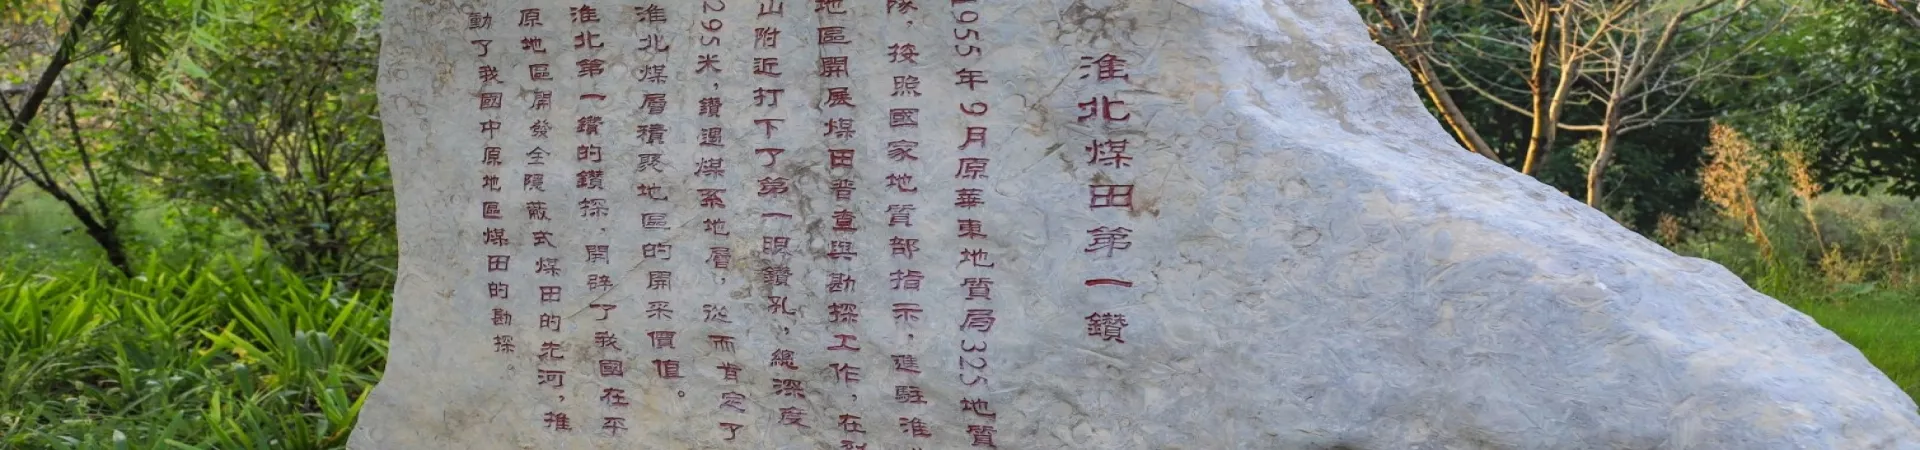 淮北煤田第一鑽
1955年9月原華東地質局325地質
隊，按照國家地質部指示，進駐淮
地區開展煤田普查與勘探工作，在
山附近打下了第一眼鑽孔，總深度
295米，鑽遇煤系地層，從而肯定了
淮北煤層積聚地區的開采價值。
淮北第一鑽的鑽探，開辟了我國在平
原地區開發全隱蔽式煤田的先河，推
動了我國中原地區煤田的勘探。